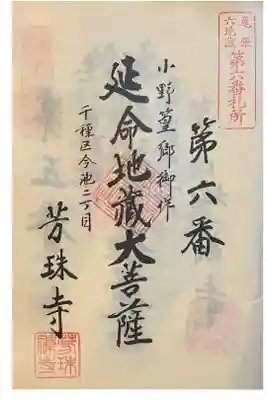 六地蔵
第六番札所
第六番
小野篁郷御作
延命地蔵大菩薩
千種区今池二丁目
芳珠寺
芳珠